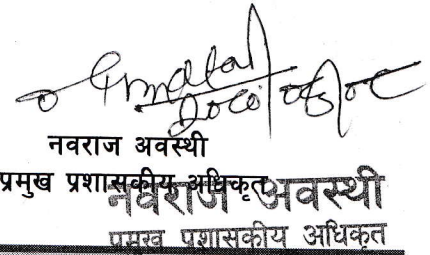 नवराज अवस्थी
प्रमुख प्रशासकीय अधिकृत
नवराज अवस्थी
प्रमुख प्रशासकीय अधिकृत